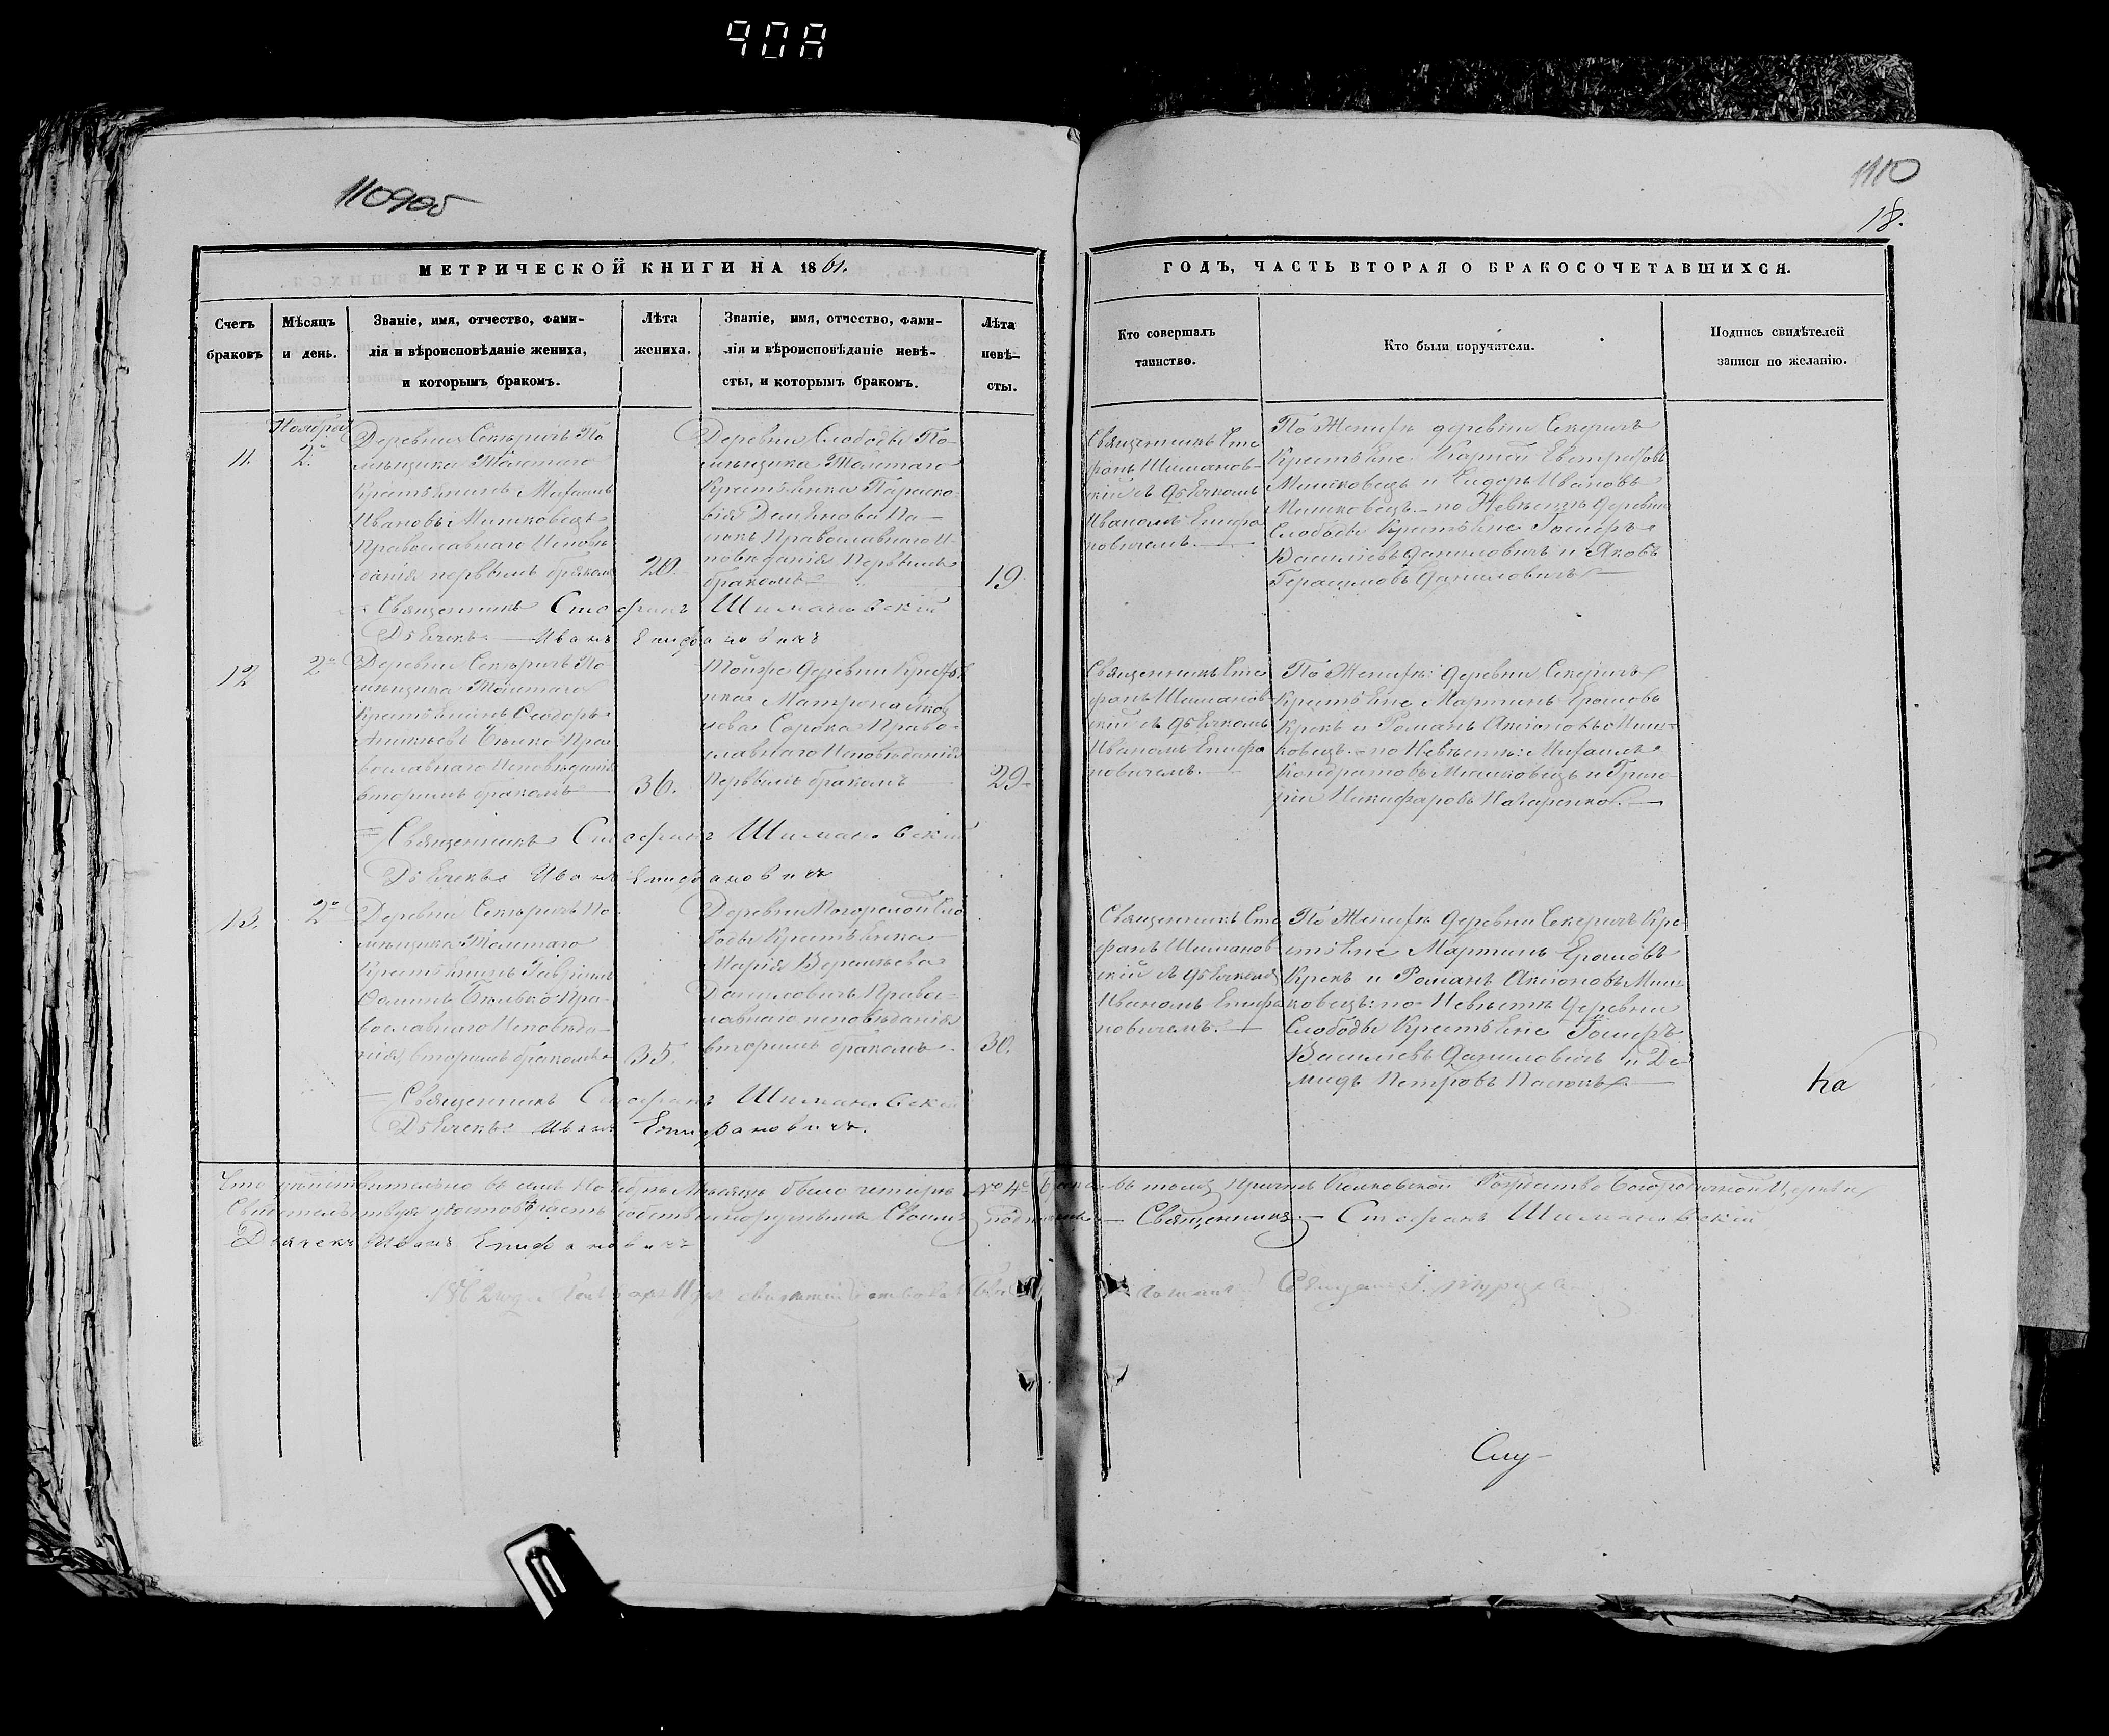 908
1109об
1110
18.
МЕТРИЧЕСКОЙ КНИГИ НА 1861.
ГОДЪ, ЧАСТЬ ВТОРАЯ О БРАКОСОЧЕТАВШИХСЯ.
Счетъ браковъ
Мѣсяцъ и день.
Званіе, имя, отчество, фами-
лія и вѣроисповѣданіе жениха,
и которымъ бракомъ.
Лѣта жениха.
Званіе, имя, отчество, фами-
лія и вѣроисповѣданіе невѣ-
сты, и которымъ бракомъ.
Лѣта невѣ-
сты.
Кто совершалъ
таинство.
Кто были поручители.
Подпись свидѣтелей
записи по желанію.
Ноября
11.
2.
Деревни Секѣричъ По
мѣщика Толстаго
Крестьянинъ Михаилъ
Ивановъ Мишковецъ
Православнаго Исповѣ
данія первымъ бракомъ
20.
Деревни Слободы По-
мѣщика Толстаго
Крестьянка Параско-
вія Демьянова Па-
сюкъ Православнаго И-
повѣданія Первымъ
бракомъ
19.
Священникъ Сте
фанъ Шиманов-
скій съ Дьячкомъ
Иваномъ Епифа
новичемъ.
По Женихѣ деревни Секеричъ
Крестьяне Евстратовъ
Мишковецъ и Сидоръ Ивановъ
Мишковецъ по Невѣстѣ деревни
Слободы Крестьяне
Василіевъ Даниловичъ и Яковъ
Герасимовъ Даниловичъ
Священникъ Стефанъ Шимановскій
Дьячекъ Иванъ Епифановичъ
12
2
Деревни Секѣричъ По
мѣщика Толстаго
Крестьянинъ Феодоръ
Пра
вославнаго Исповѣданія
вторымъ бракомъ
36.
Тойже Деревни Крестья
нка Матрона
лова Сорока Право-
славнаго Исповѣданія
Первымъ бракомъ
29.
Священникъ Сте
фанъ Шиманов
скій съ Дьячкомъ
Иваномъ Епифа
новичемъ.
По Женихѣ: деревни Секеричъ
Крестьяне Мартинъ Ерошовъ
Крекъ и Романъ Аксіоновъ Миш-
ковецъ. по Невѣстѣ: Михаилъ
Кондратовъ Мишковецъ и Григо-
рій Никифаровъ Назаренко.
Священникъ Стефанъ Шимановскій
Дьячекъ Иванъ Епифановичъ
13.
2
Деревни Секѣричъ По
мѣщика Толстаго
Крестьянинъ Гавріилъ
Фоминъ Пра-
вославнаго Исповѣда-
нія, вторымъ бракомъ
35.
Деревни Погорелой Сло
боды Крестьянка
Марія Веремѣева
Даниловичъ Право-
лавнаго исповѣданія
вторымъ бракомъ
30.
Священникъ Сте
фанъ Шиманов-
скій съ Дьячкомъ
Иваномъ Епифа
новичемъ.
По Женихѣ деревни Секеричъ Кре
стьяне Мартинъ Ерошовъ
Крекъ и Романъ Аксіоновъ Миш
ковецъ: по Невѣстѣ деревни
Слободы Крестьяне
Василіевъ Даниловичъ и Де-
мидъ Петровъ Пасюкъ.
на
Священникъ Стефанъ Шимановскій
Дьячекъ: Иванъ Епифановичъ.
Что дѣйствительно въ семъ Ноябрѣ Мѣсяцѣ было четыре № 4 брака въ томъ Причтъ Рождество Богородичной Церкви
Свидетельствуя удостовѣряетъ собственноручнымъ Своимъ подписомъ. Священникъ Стефанъ Шимановскій
Дьячекъ Иванъ Епифановичъ
1862 года Генваря 11 дня свидѣтельствовалъ
Слу-